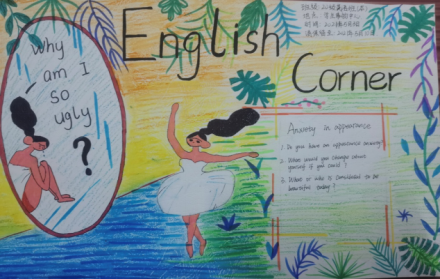 English
Corner
Why
am I
so
ugly
?
Anxiety in appearance
1. Do you have an appearance anxiety?
2. What would you change about
yourself if you could?
3. What or who is considered to be
beautiful today?